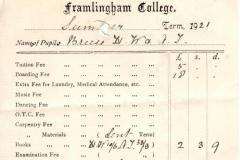 Framlingham College.
Summer Term, 1921
Name of Pupils Breese W. Wa A. T.
£ s. d.
Tuition Fee 5 -
Boarding Fee 18
Extra Fee for Laundry, Medical Attendance, etc.
Music Fee
Dancing Fee
O.T.C. Fee
Carpentry Fee
„ Materials (Lent Term)
Books 2 3 9
Examination Fee